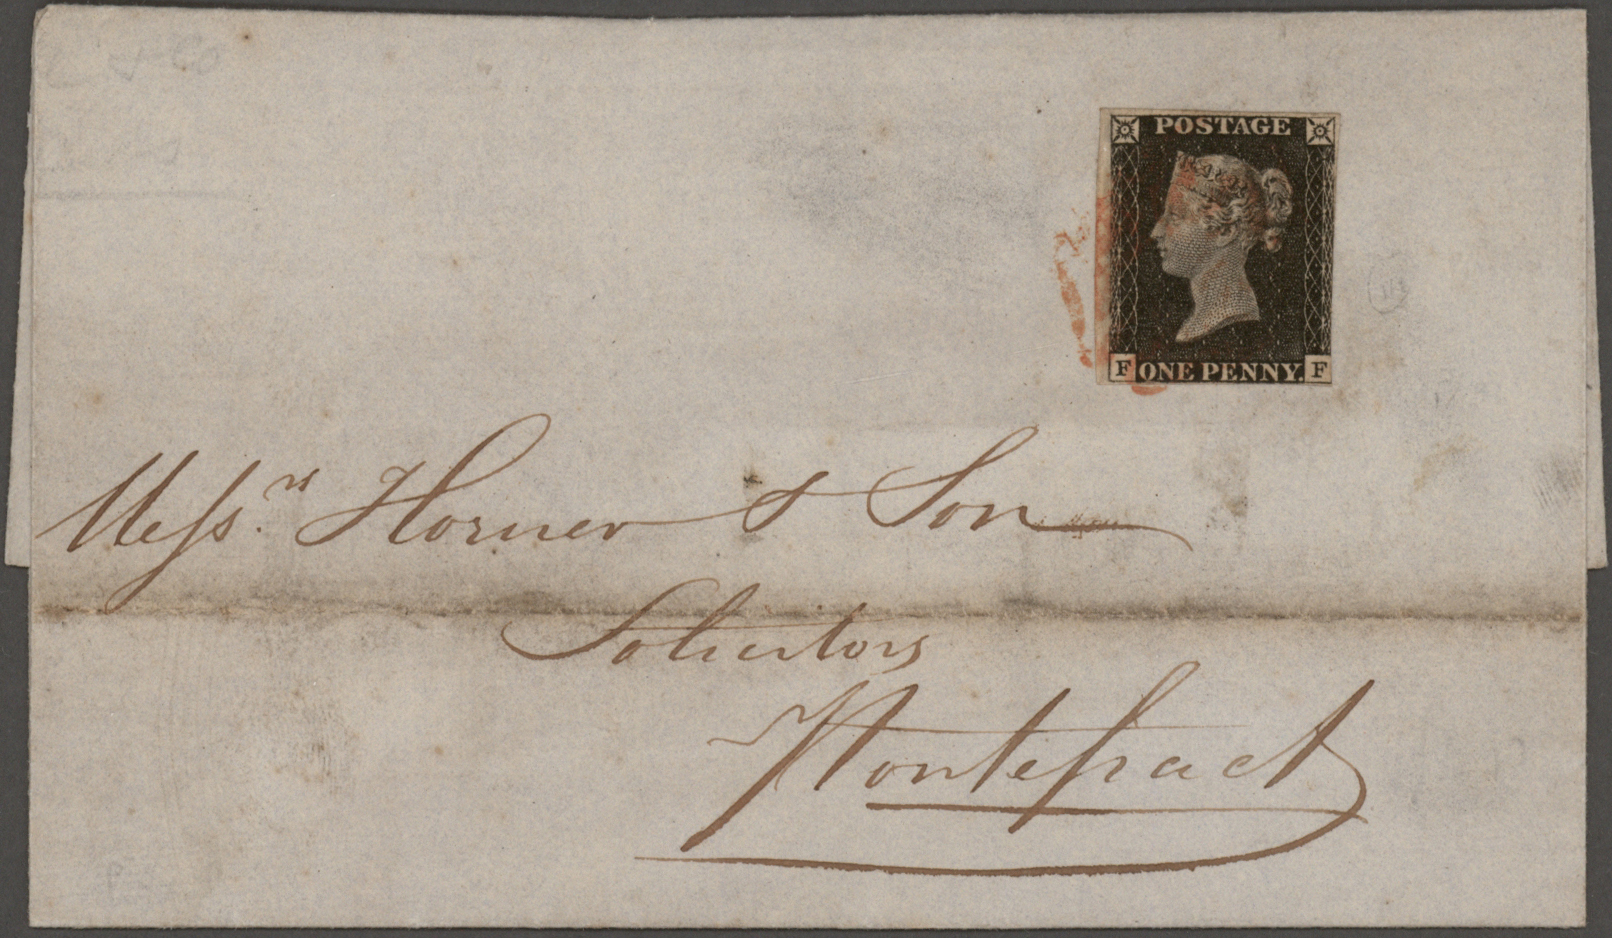 POSTAGE
F ONE PENNY. F
Messrs. Horner & Son
Solicitors
Pontefract